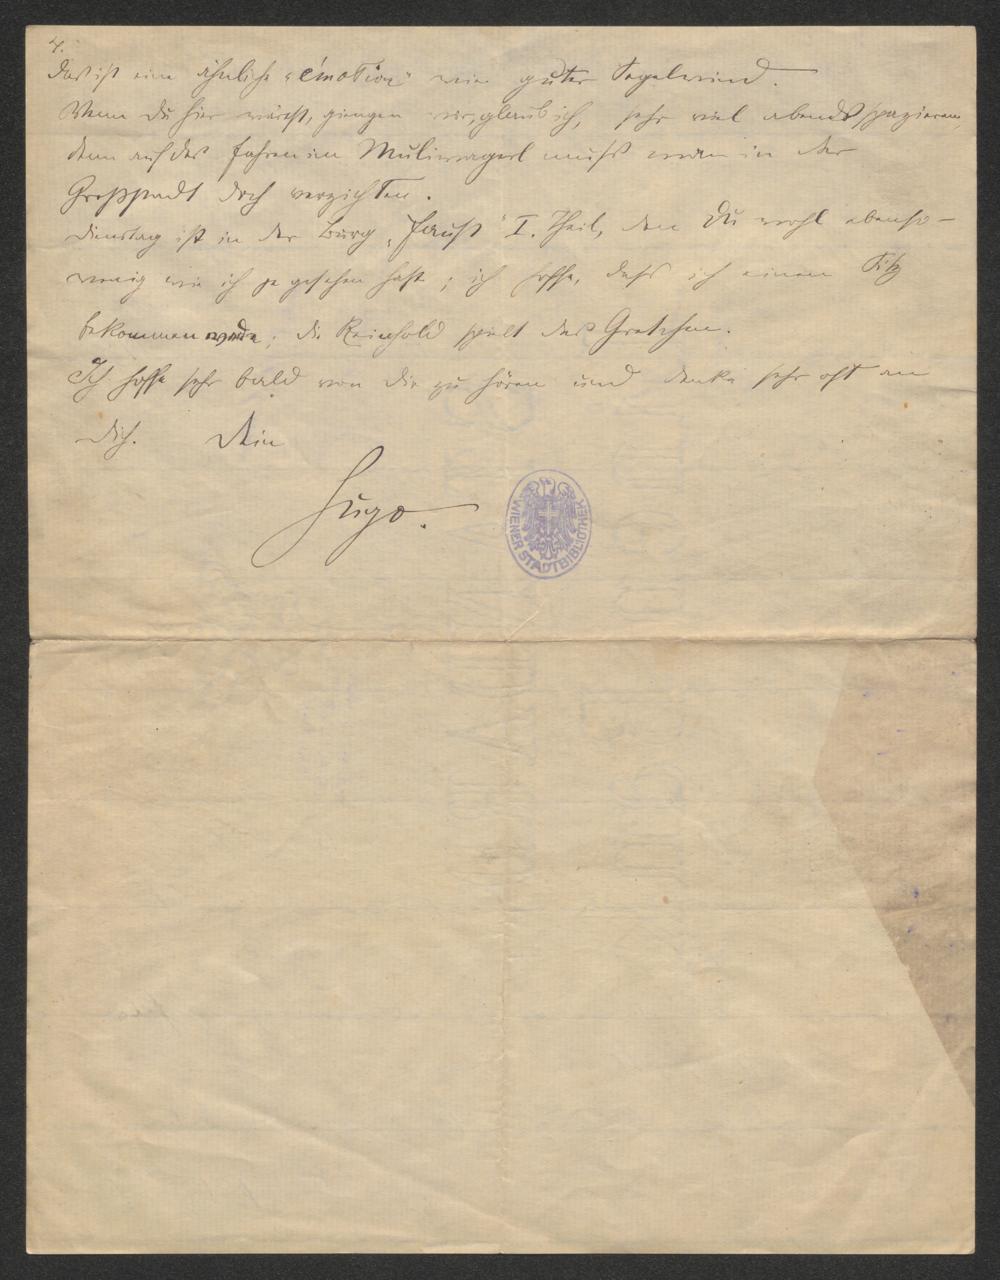 4.
Das ist eine ähnliche „émotion“ wie guter Segelwind.
Wenn Du hier wärest, giengen wir, glaub ich, sehr viel abends spazieren,
denn auf das Fahren im Muliwagerl muss man in der
Großstadt doch verzichten.
Dienstag ist in der Burg „Faust“ I. Theil, den Du wohl ebenso-
wenig wie ich je gesehen hast; ich hoffe, dass ich einen Sitz
bekommen werde; die Reinhold spielt das Gretchen.
Ich hoffe sehr bald von Dir zu hören und denke sehr oft an
Dich. Dein
Hugo.
WIENER STADTBIBLIOTHEK